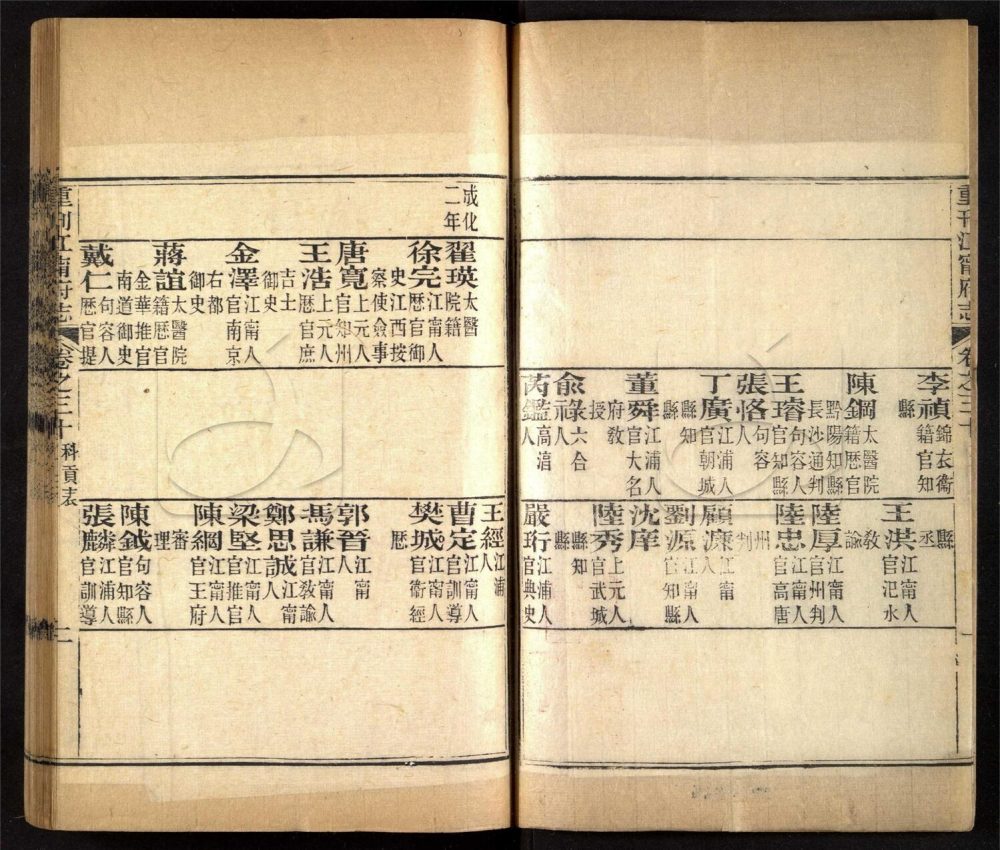 重刊江甯府志
卷之三十
一
李禎錦衣衛籍官知縣
陳鋼太醫院籍歷官黔陽知縣長沙通判
王璿句容人官知縣
張恪句容人
丁廣江浦人官朝城縣知縣
董舜江浦人官大名府教授
俞祿六合人
芮鑑高淯人
縣丞
王洪江甯人官汜水教諭
陸厚江甯人官州判
陸忠江甯人官高唐州判
顧濂江甯人
劉源江甯人官知縣
沈庠
陸秀上元人官武城縣知縣
嚴珩江浦人官典史
成化二年
翟瑛太醫院籍
徐完江甯人歷官御史江西按察使僉事
唐寬上元人官知州
王浩上元人歷官庶吉士御史
金澤江甯人官南京右都御史
蔣誼太醫院籍歷官金華推官南道御史
戴仁句容人歷官提
王經江浦人
曹定江甯人官訓導
樊城江甯人官衛經歷
郭晉江甯人
馮謙江甯人官教諭
鄭思誠江甯人
梁堅江甯人官推官
陳綱江甯人官王府審理
陳鉞句容人官知縣
張麟江浦人官訓導
重刊江甯府志
卷之三十
科貢表
二